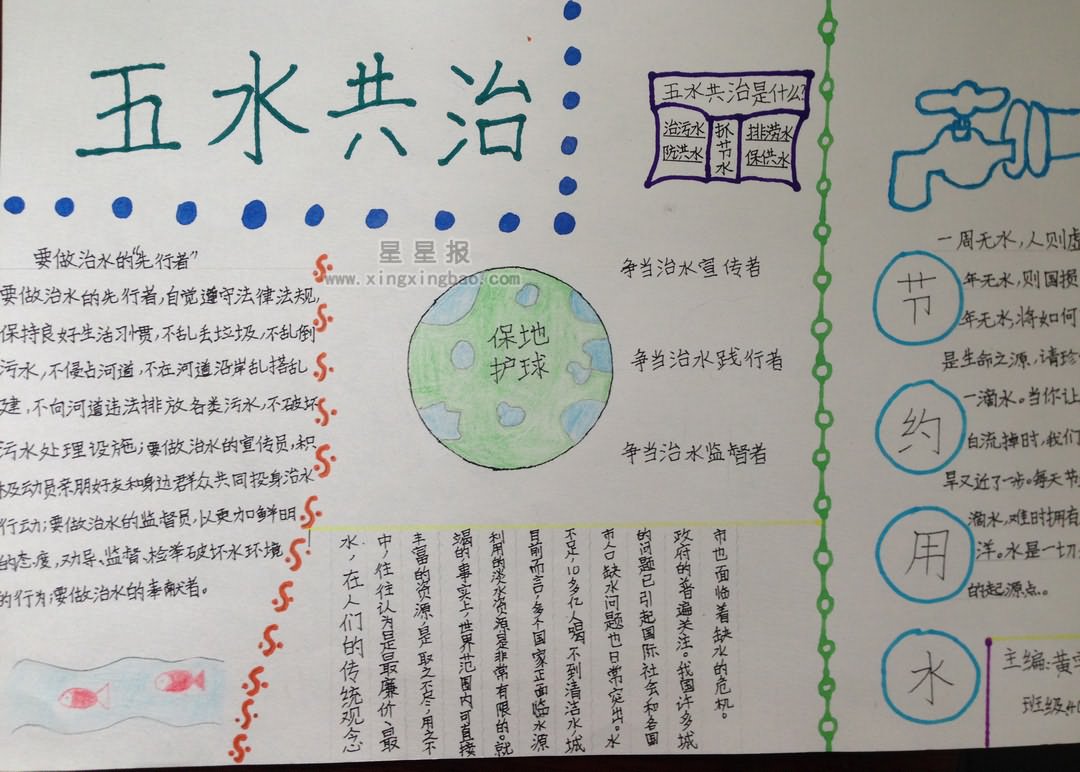 五水共治
五水共治是什么?
治污水
防洪水
抓节水
排涝水
保供水
要做治水的“先行者”
要做治水的先行者,自觉遵守法律法规,
保持良好生活习惯,不乱丢垃圾,不乱倒
污水,不侵占河道,不在河道沿岸乱搭乱
建,不向河道违法排放各类污水,不破坏
污水处理设施;要做治水的宣传员,积
极动员亲朋好友和身边群众共同投身治水
行动;要做治水的监督员,以更加鲜明
的态度,劝导、监督、检举破坏水环境
的行为;要做治水的奉献者。
星星报
www.xingxingbao.com
保地
护球
争当治水宣传者
争当治水践行者
争当治水监督者
水,在人们的传统观念
中,往往认为是最廉价、最
丰富的资源,是取之不尽,用之不
竭的事实上,世界范围内可直接
利用的淡水资源是非常有限的。就
目前而言,多个国家正面临水源
不足10多亿人喝不到清洁水城
市人口缺水问题也日常突出。水
的问题已引起国际社会和各国
政府的普遍关注。我国许多城
市也面临着缺水的危机。
节
约
用
水
一周无水,人则虚
年无水,则国损
年无水,将如何
是生命之源,请珍
一滴水。当你让
自流掉时,我们
旱又近了一步。每天节
滴水,难时拥有
洋。水是一切
的起源点。
主编:黄
班级40